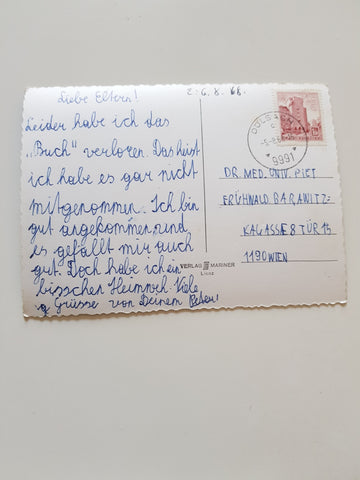 Liebe Eltern!
Leider habe ich das
„Buch" verloren. Das heist
ich habe es gar nicht
mitgenommen. Ich bin
gut angekommen und
es gefällt mir auch
gut. Doch habe ich ein
bisschen Heimweh. Viele
Grüsse von Deinem
6.8.68.
9991
DR. MED. UNIV.
FRÜHWALD BARAWITZ-
KAGASSE 8 TÜR 13
1190 WIEN
VERLAG MARINER